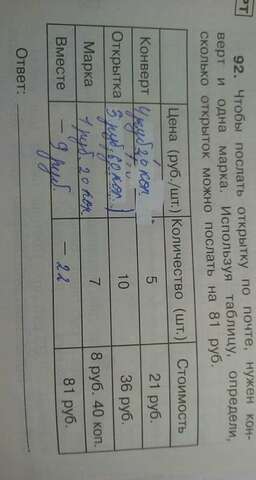 92. Чтобы послать открытку по почте, нужен кон-
верт и одна марка. Используя таблицу, определи,
сколько открыток можно послать на 81 руб.
Цена (руб./шт.) Количество (шт.) Стоимость
Конверт 4 руб 20 коп. 5 21 руб.
Открытка 3 руб. 60 коп. 10 36 руб.
Марка 1 руб. 20 коп. 7 8 руб. 40 коп.
Вместе — 9 руб. — 81 руб.
Ответ: